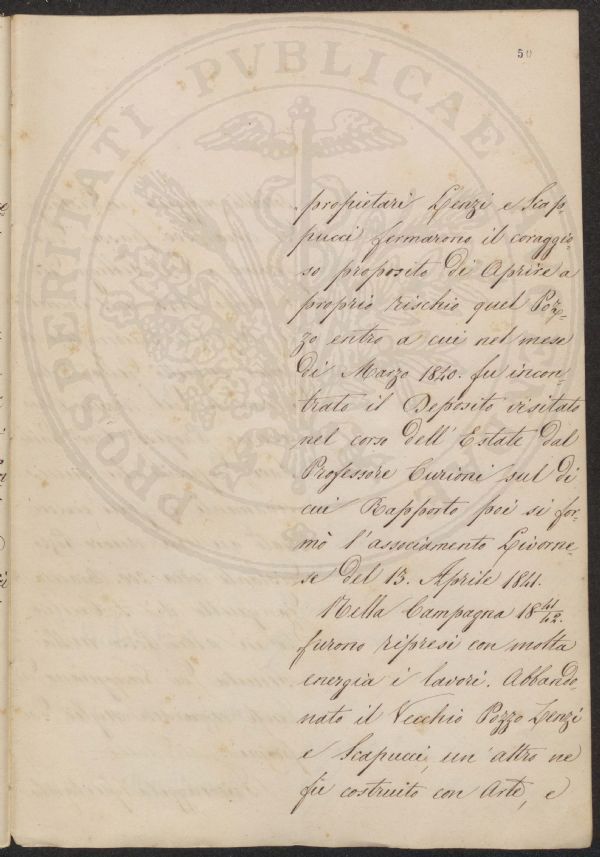 50
propietari Lenzi e Scap=
pucci fermarono il coraggio=
so proposito di Aprire a
proprio rischio quel Poz=
zo entro a cui nel mese
di Marzo 1840. fu incon=
trato il Deposito visitato
nel corso dell' Estate dal
Professore Curioni sul di
cui Rapporto poi si for=
mò l'associamento Livorne=
se del 13. Aprile 1841.
Nella Campagna 18 41/42.
furono ripresi con molta
energia i lavori. Abbando
nato il Vecchio Pozzo Lenzi
e Scapucci, un altro ne
fù costruito con Arte, e
PROSPERITATI PVBLICAE